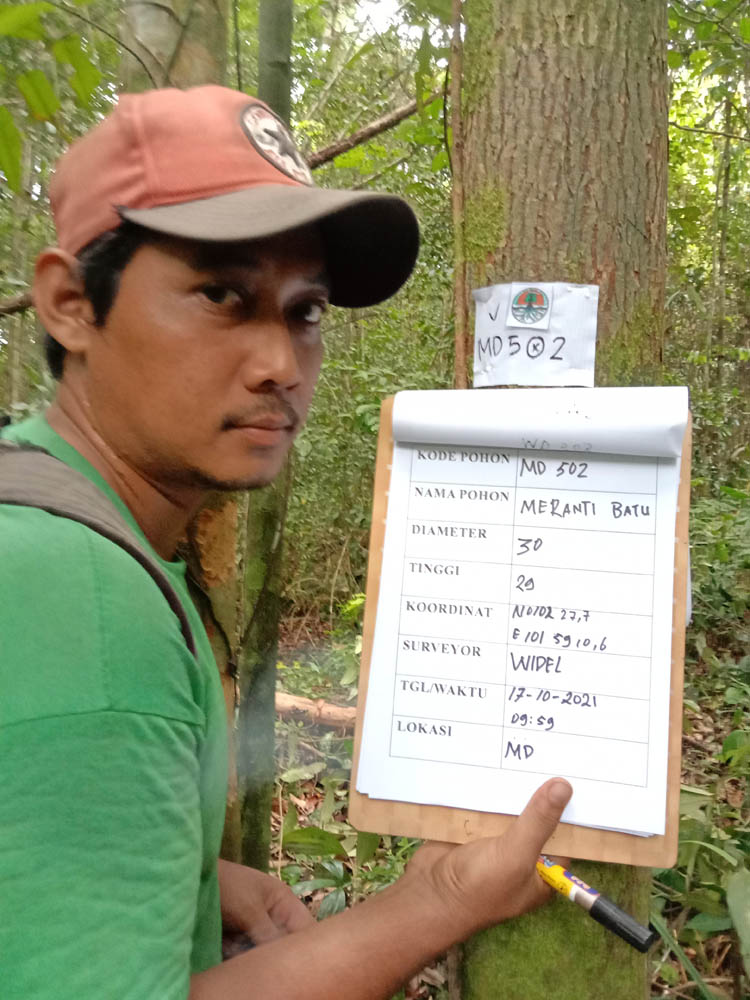 ✓
MD 5 Ⓚ 2
KODE POHON MD 502
NAMA POHON MERANTI BATU
DIAMETER 30
TINGGI 29
KOORDINAT N0102 27,7
E 101 59 10,6
SURVEYOR WIDEL
TGL/WAKTU 17-10-2021
09:59
LOKASI MD